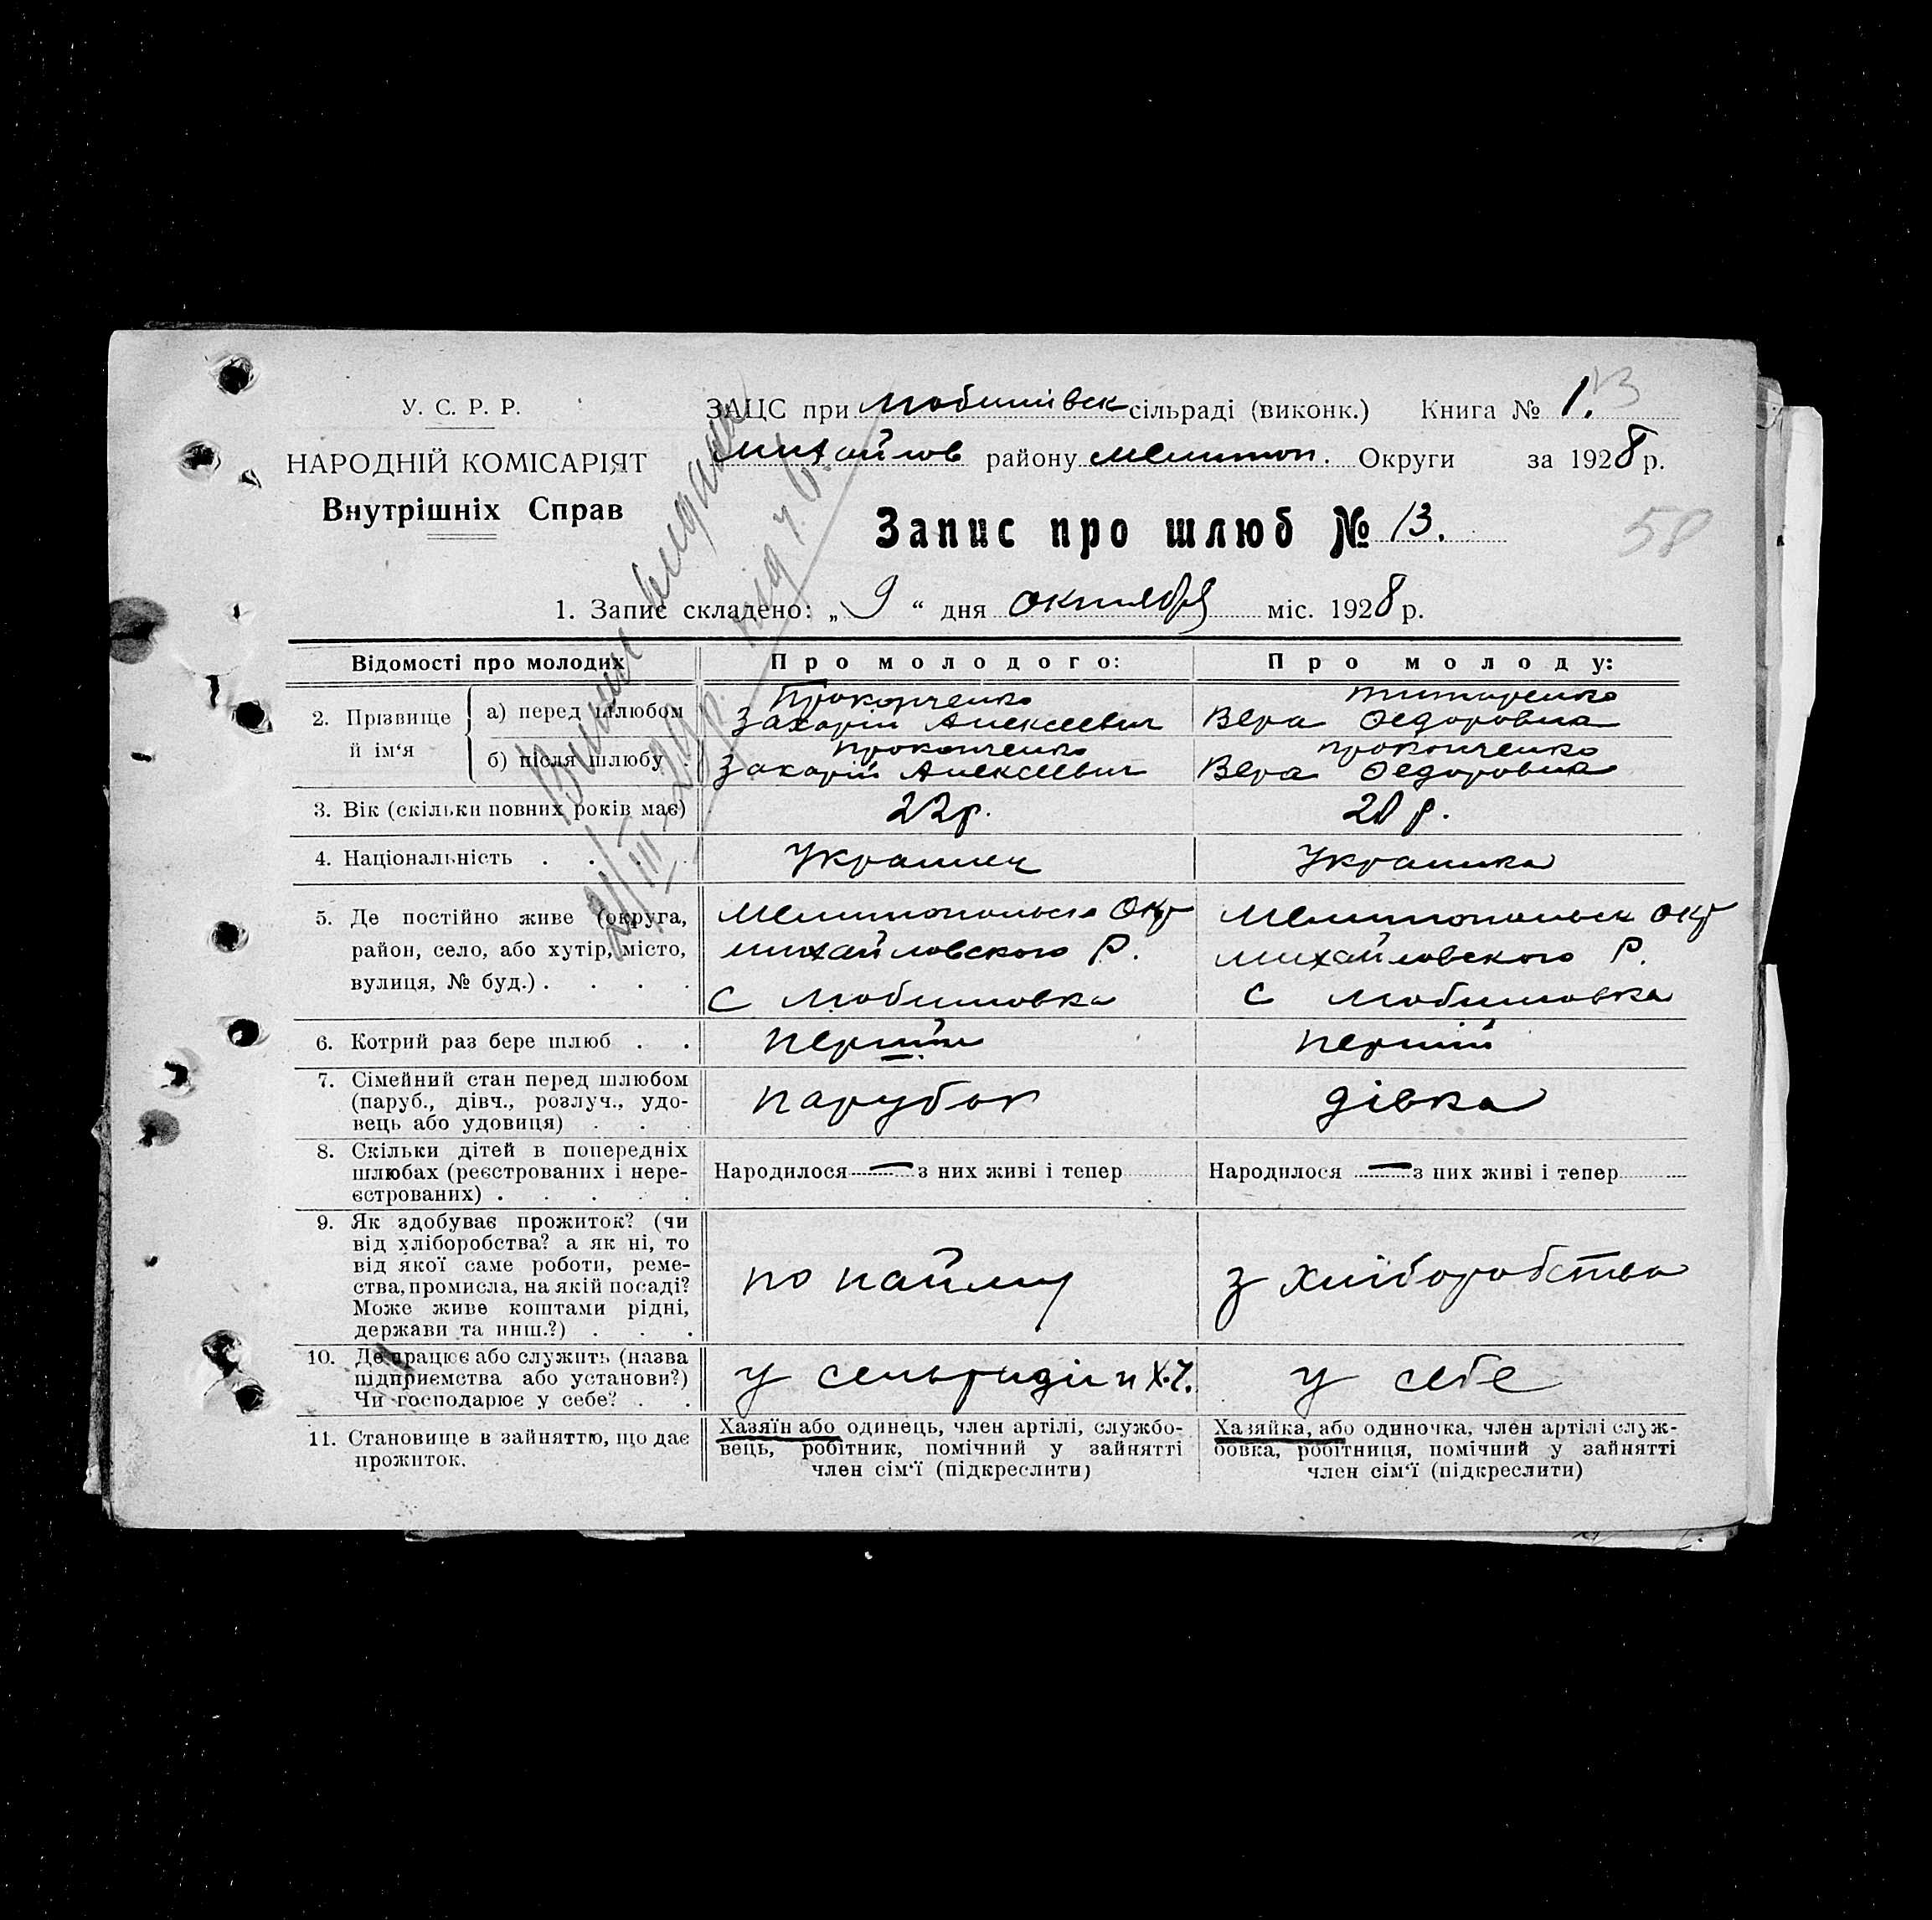 У. С. Р. Р.
НАРОДНІЙ КОМІСАРІЯТ
Внутрішніх Справ
ЗАЦС при Любимівск сільраді (виконк.) Книга № 1. 13
Михайлов району Мелитоп. Округи за 1928 р.
Запис про шлюб № 13.
58
1. Запис складено: „ 9 “ дня октября міс. 1928 р.
Відомості про молодих
Про молодого:
Про молоду:
2. Прізвище й ім‘я
а) перед шлюбом
Прокопченко
Захарій Алексеевич
Титаренко
Вера Федоровна
б) після шлюбу
Прокопченко
Захарій Алексеевич
Прокопченко
Вера Федоровна
3. Вік (скільки повних років має)
22 р.
20 р.
4. Національність . . . .
Украинец
Украинка
5. Де постійно живе (округа,
район, село, або хутір, місто,
вулиця, № буд.) . . . .
Мелитопольск Окр
Михайловского Р.
С Любимовка
Мелитопольск окр
Михайловского Р.
С Любимовка
6. Котрий раз бере шлюб . .
перший
перший
7. Сімейний стан перед шлюбом
(паруб., дівч., розлуч., удо-
вець або удовиця) . . .
парубок
дівка
8. Скільки дітей в попередніх
шлюбах (реєстрованих і нере-
єстрованих) . . . . .
Народилося — з них живі і тепер
Народилося — з них живі і тепер
9. Як здобуває прожиток? (чи
від хліборобства? а як ні, то
від якої саме роботи, реме-
ства, промисла, на якій посаді?
Може живе коштами рідні,
держави та инш.?) . . .
по найму
з хліборобства
10. Де працює або служить (назва
підприємства або установи?)
Чи господарює у себе? . .
у сельраді и Х.Ч.
у себе
11. Становище в зайняттю, що дає
прожиток.
Хазяїн або одинець, член артілі, службо-
вець, робітник, помічний у зайнятті
член сім‘ї (підкреслити)
Хазяйка, або одиночка, член артілі служ-
бовка, робітниця, помічний у зайнятті
член сім‘ї (підкреслити)